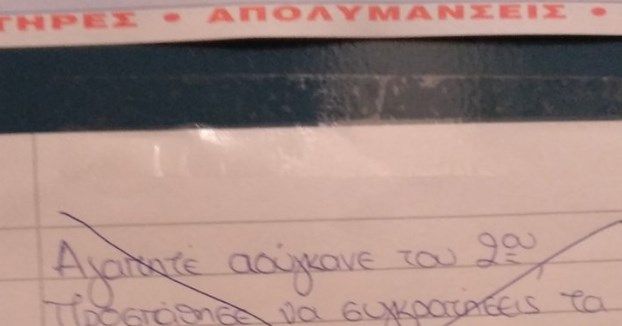 ΤΗΡΕΣ • ΑΠΟΛΥΜΑΝΣΕΙΣ •
Αγαπητέ ασύγκανε του 2ου,
Προσπάθησε να συγκρατήσεις τα